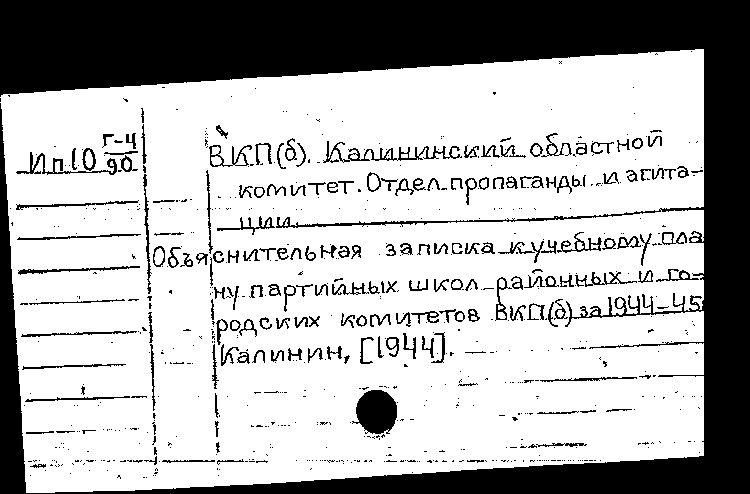 Ип10 Г-4/90
ВКП(б). Калининский областной
комитет. Отдел пропаганды и агита-
ции.
Объяснительная записка к учебному пла
ну партийных школ районных и го-
родских комитетов ВКП(б) за 1944-45
Калинин, [1944].